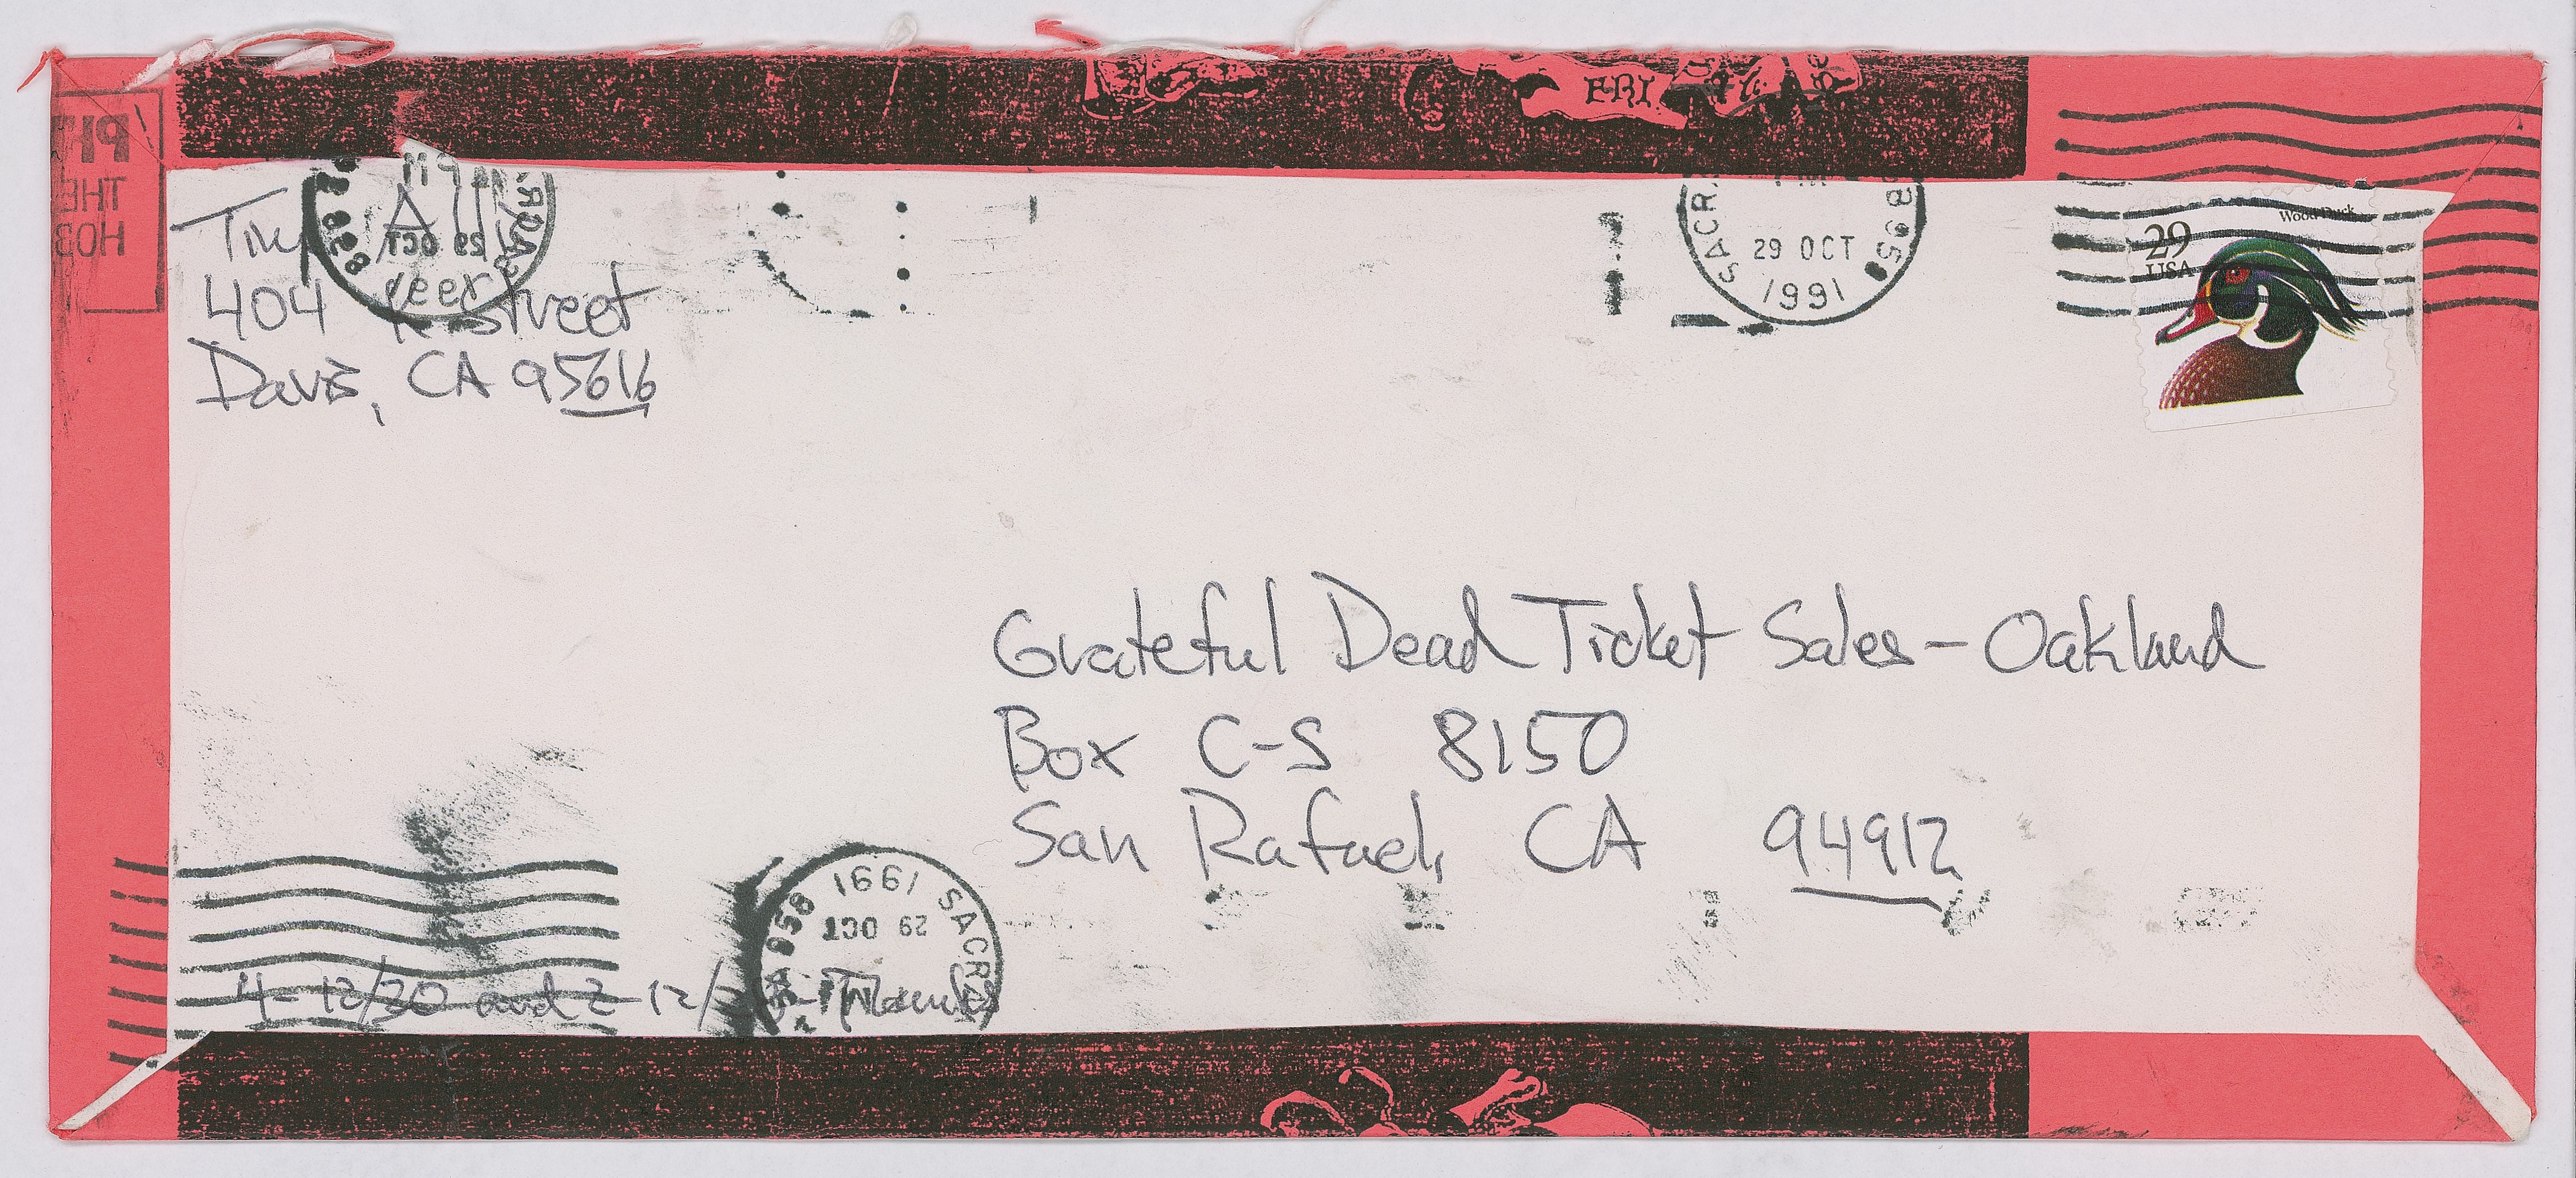 FRI.
PIT
THE
HOB
Tim A
404 K Street
Davis, CA 95616
1991
29 OCT
958
SACR
29 OCT
1991
958
Wood Duck
29
USA
Grateful Dead Ticket Sales - Oakland
Box C-S 8150
San Rafael, CA 94912
SACR
1991
29 OCT
CA 958
4 - 12/30 and 2 - 12/ - Thanks